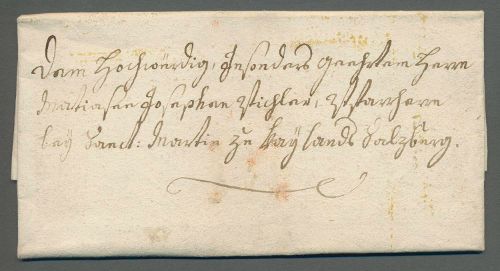 Dem Hochwürdig, besonders Geehrten Herrn
Mathiasen Josephen Pichler, Pfarrherrn
bey Sanct: Martin zu Saylands Salzburg.